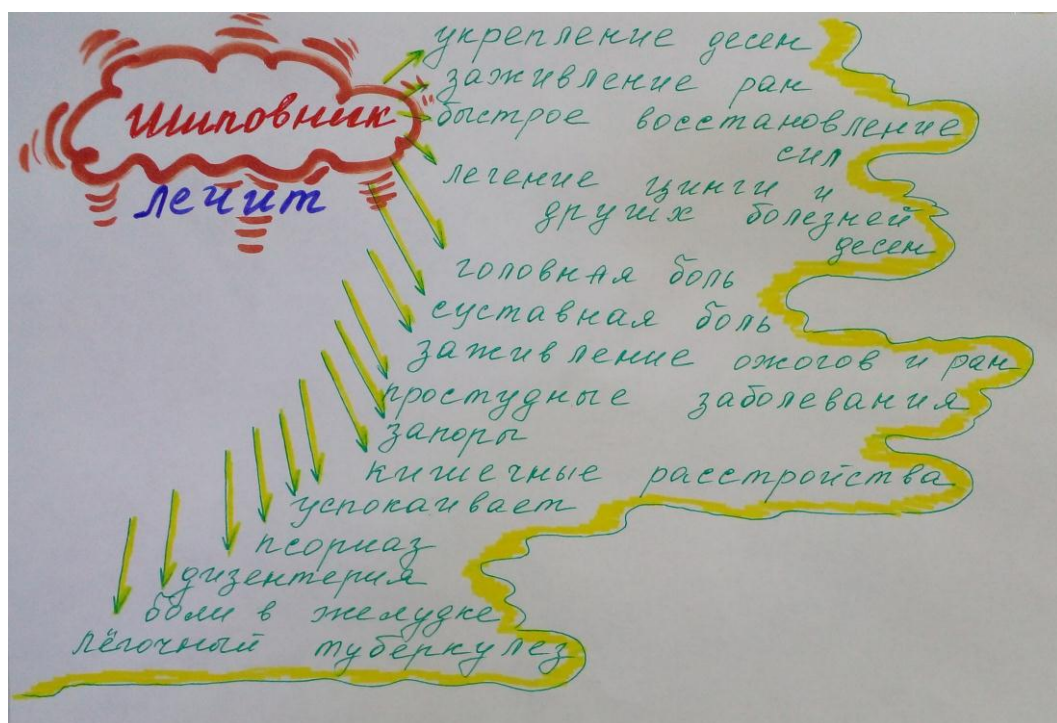 Шиповник
лечит
укрепление десен
заживление ран
быстрое восстановление
сил
лечение цинги и
других болезней
десен
головная боль
суставная боль
заживление ожогов и ран
простудные заболевания
запоры
кишечные расстройства
успокаивает
псориаз
дизентерия
боли в желудке
лёгочный туберкулез